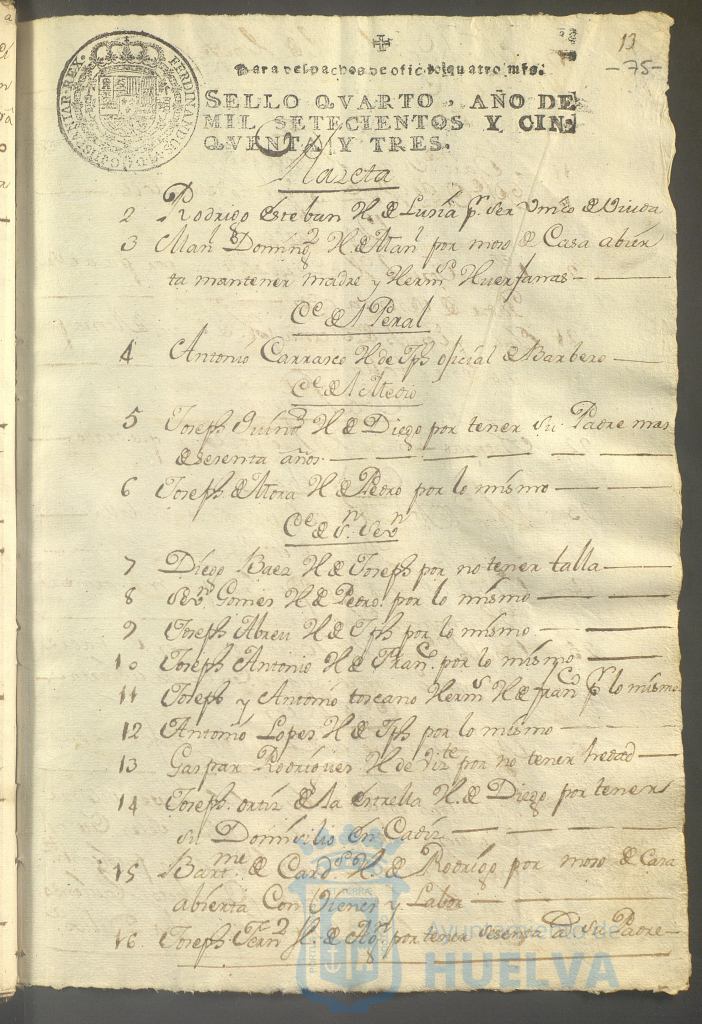 13
-75-
Para despachos de oficio quatro mrs.
SELLO QVARTO, AÑO DE
MIL SETECIENTOS Y CIN-
QVENTA Y TRES.
Plazeta
2 Rodrigo Esteban H. de Lucia pr. ser Vnico de Viuda
3 Man Doming H. de Man por moso de Casa abier
ta mantener madre y Hermas Huerfanas
Ce del Peral
4 Antonio Carrasco H de Jph oficial de Barbero
Ce del Medio
5 Joseph H de Diego por tener su Padre mas
de sesenta años
6 Joseph de Mora H de Pedro por lo mismo
Ce de Sn Sevn
7 Diego Baez H de Joseph por no tener talla
8 Sevn Gomes H de Pedro por lo mismo
9 Joseph Abreu H de Jph por lo mismo
10 Joseph Antonio H de Franco por lo mismo
11 Joseph y Antonio toscano Herms H de franco pr lo mismo
12 Antonio Lopes H de Jph por lo mismo
13 Gaspar Rodrigues H de Vizte por no tener hedad
14 Joseph ortiz de la Estrella H. de Diego por tener
su Domisilio en Cadiz
15 Bartme de Card H. de Rodrigo por moso de Casa
abierta Con Vienes y Labor
16 Joseph Fern H. de por tener sesenta As su Padre
Ayuntamiento de
HUELVA